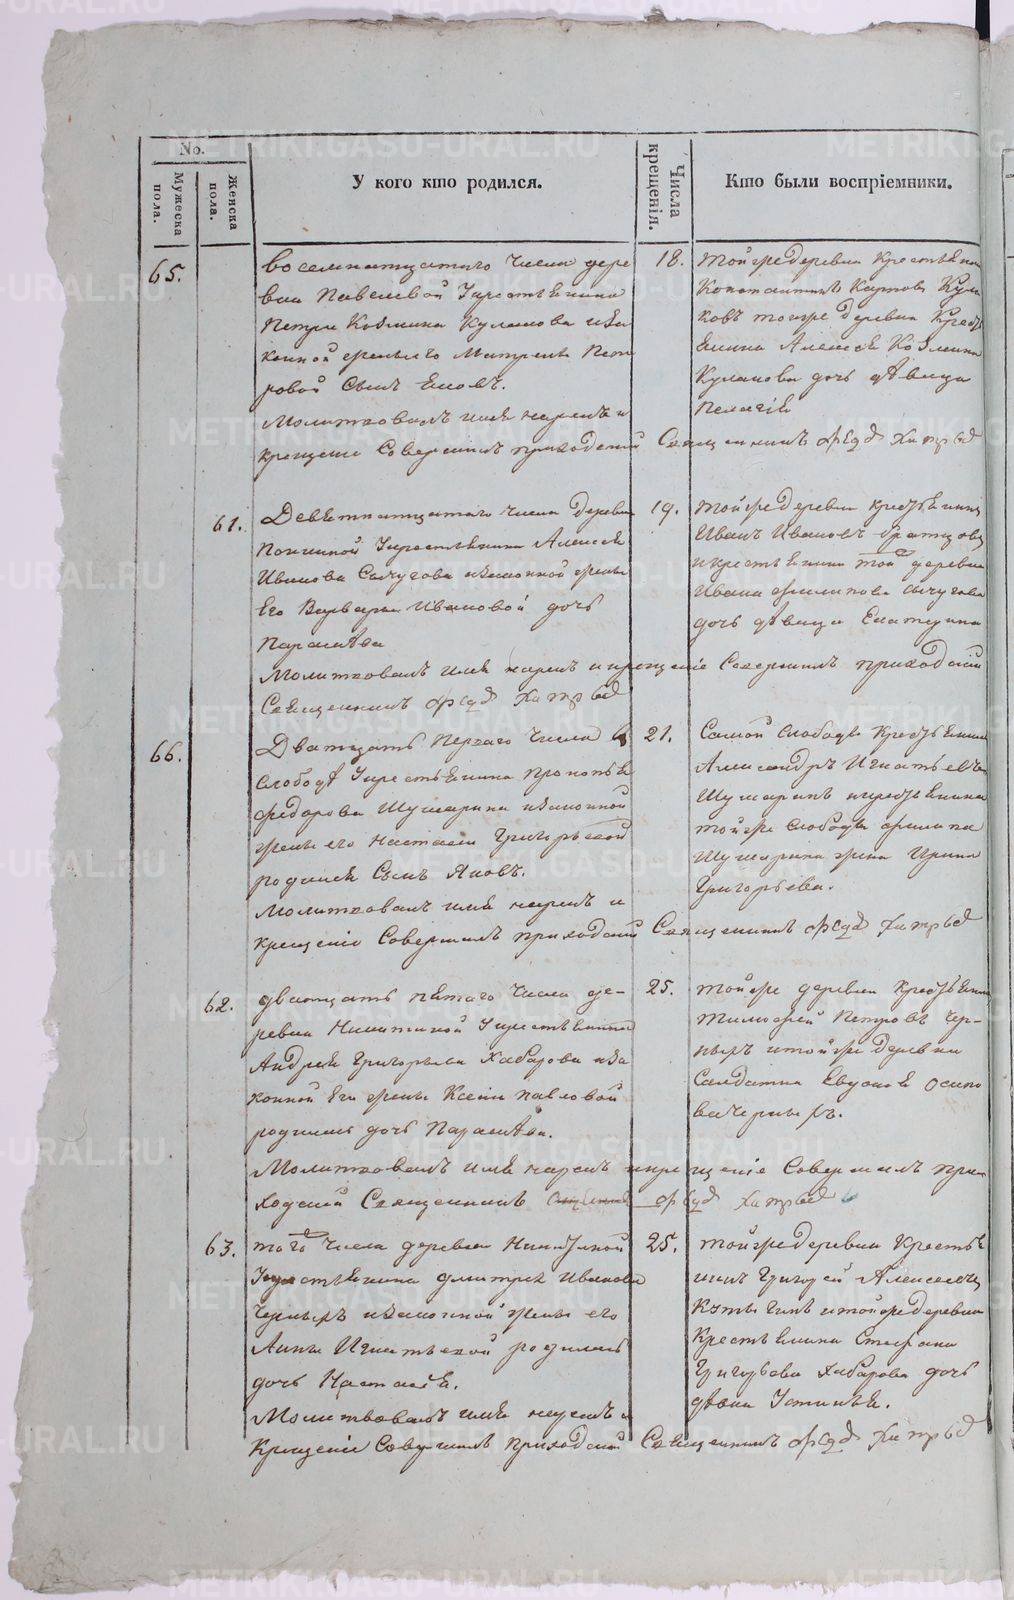 No.
Мужеска пола.
Женска пола.
У кого кто родился.
Числа крещенія.
Кто были воспріемники.
65.
восемнатцатаго числа дере
вни Павлевой Укрестьянина
Петра Козмина Кулакова иза
конной жены его Матрены Пет
ровой сынъ
Молитвовалъ имя нарекъ и
крещеніе Совершилъ приходский Священникъ
18.
тойже деревни крестьянинъ
Константинъ Карповъ Кула
ковъ тойже деревни Кресть
янина Алексея Козмина
Кулакова дочь девица
Пелагія
61.
Девятнатцатаго числа деревни
Укрестьянина Алексея
Иванова Сычугова изаконной жены
Его Варвары Ивановой дочь
Параскева
Молитвовалъ имя нарекъ и крещеніе Совершилъ приходский
Священникъ
19.
тойже деревни крестьянинъ
Иванъ Ивановъ
икрестьянина той деревни
Ивана Филипова Сычугова
дочь девица Екатерина
66.
Дватцать Перваго Числа в
слободе Укрестьянина Прокопья
Федорова Шушарина изаконной
жены его Настасьи Григорьевой
родился Сынъ Яковъ.
Молитвовалъ имя нарекъ и
Крещеніе Совершилъ приходский Священникъ
21.
Самой слободы Крестьянинъ
Александръ Игнатьевъ
Шушаринъ икрестьянина
тойже слободы Филипа
Шушарина жена Ирина
Григорьева.
62.
дватцать пятаго Числа де-
ревни Никитиной Укрестьянина
Андрея Григорьева Хабарова иза
конной Его жены Ксении павловой
родилась дочь Параскева.
Молитвовалъ имя нарекъ икрещеніе Совершилъ при
ходский Священникъ
25.
тойже деревни Крестьянинъ
Тимофей Петровъ Чер-
ныхъ итойже деревни
Салдатка Евдокия Осипо
ва Черныхъ.
63.
того Числа деревни Никитиной
Укрестьянина дмитрея Иванова
Черныхъ изаконной жены его
Анны Игнатьевой родилась
дочь Настасья.
Молитвовалъ имя нарекъ и
Крещеніе Совершилъ приходский Священникъ
25.
тойже деревни Кресть
нинъ Григорей Алексеевъ
итойже деревни
Крестьянина Стефана
Григорьева Хабарова дочь
девка Устинья.
METRIKI.GASO-URAL.RU